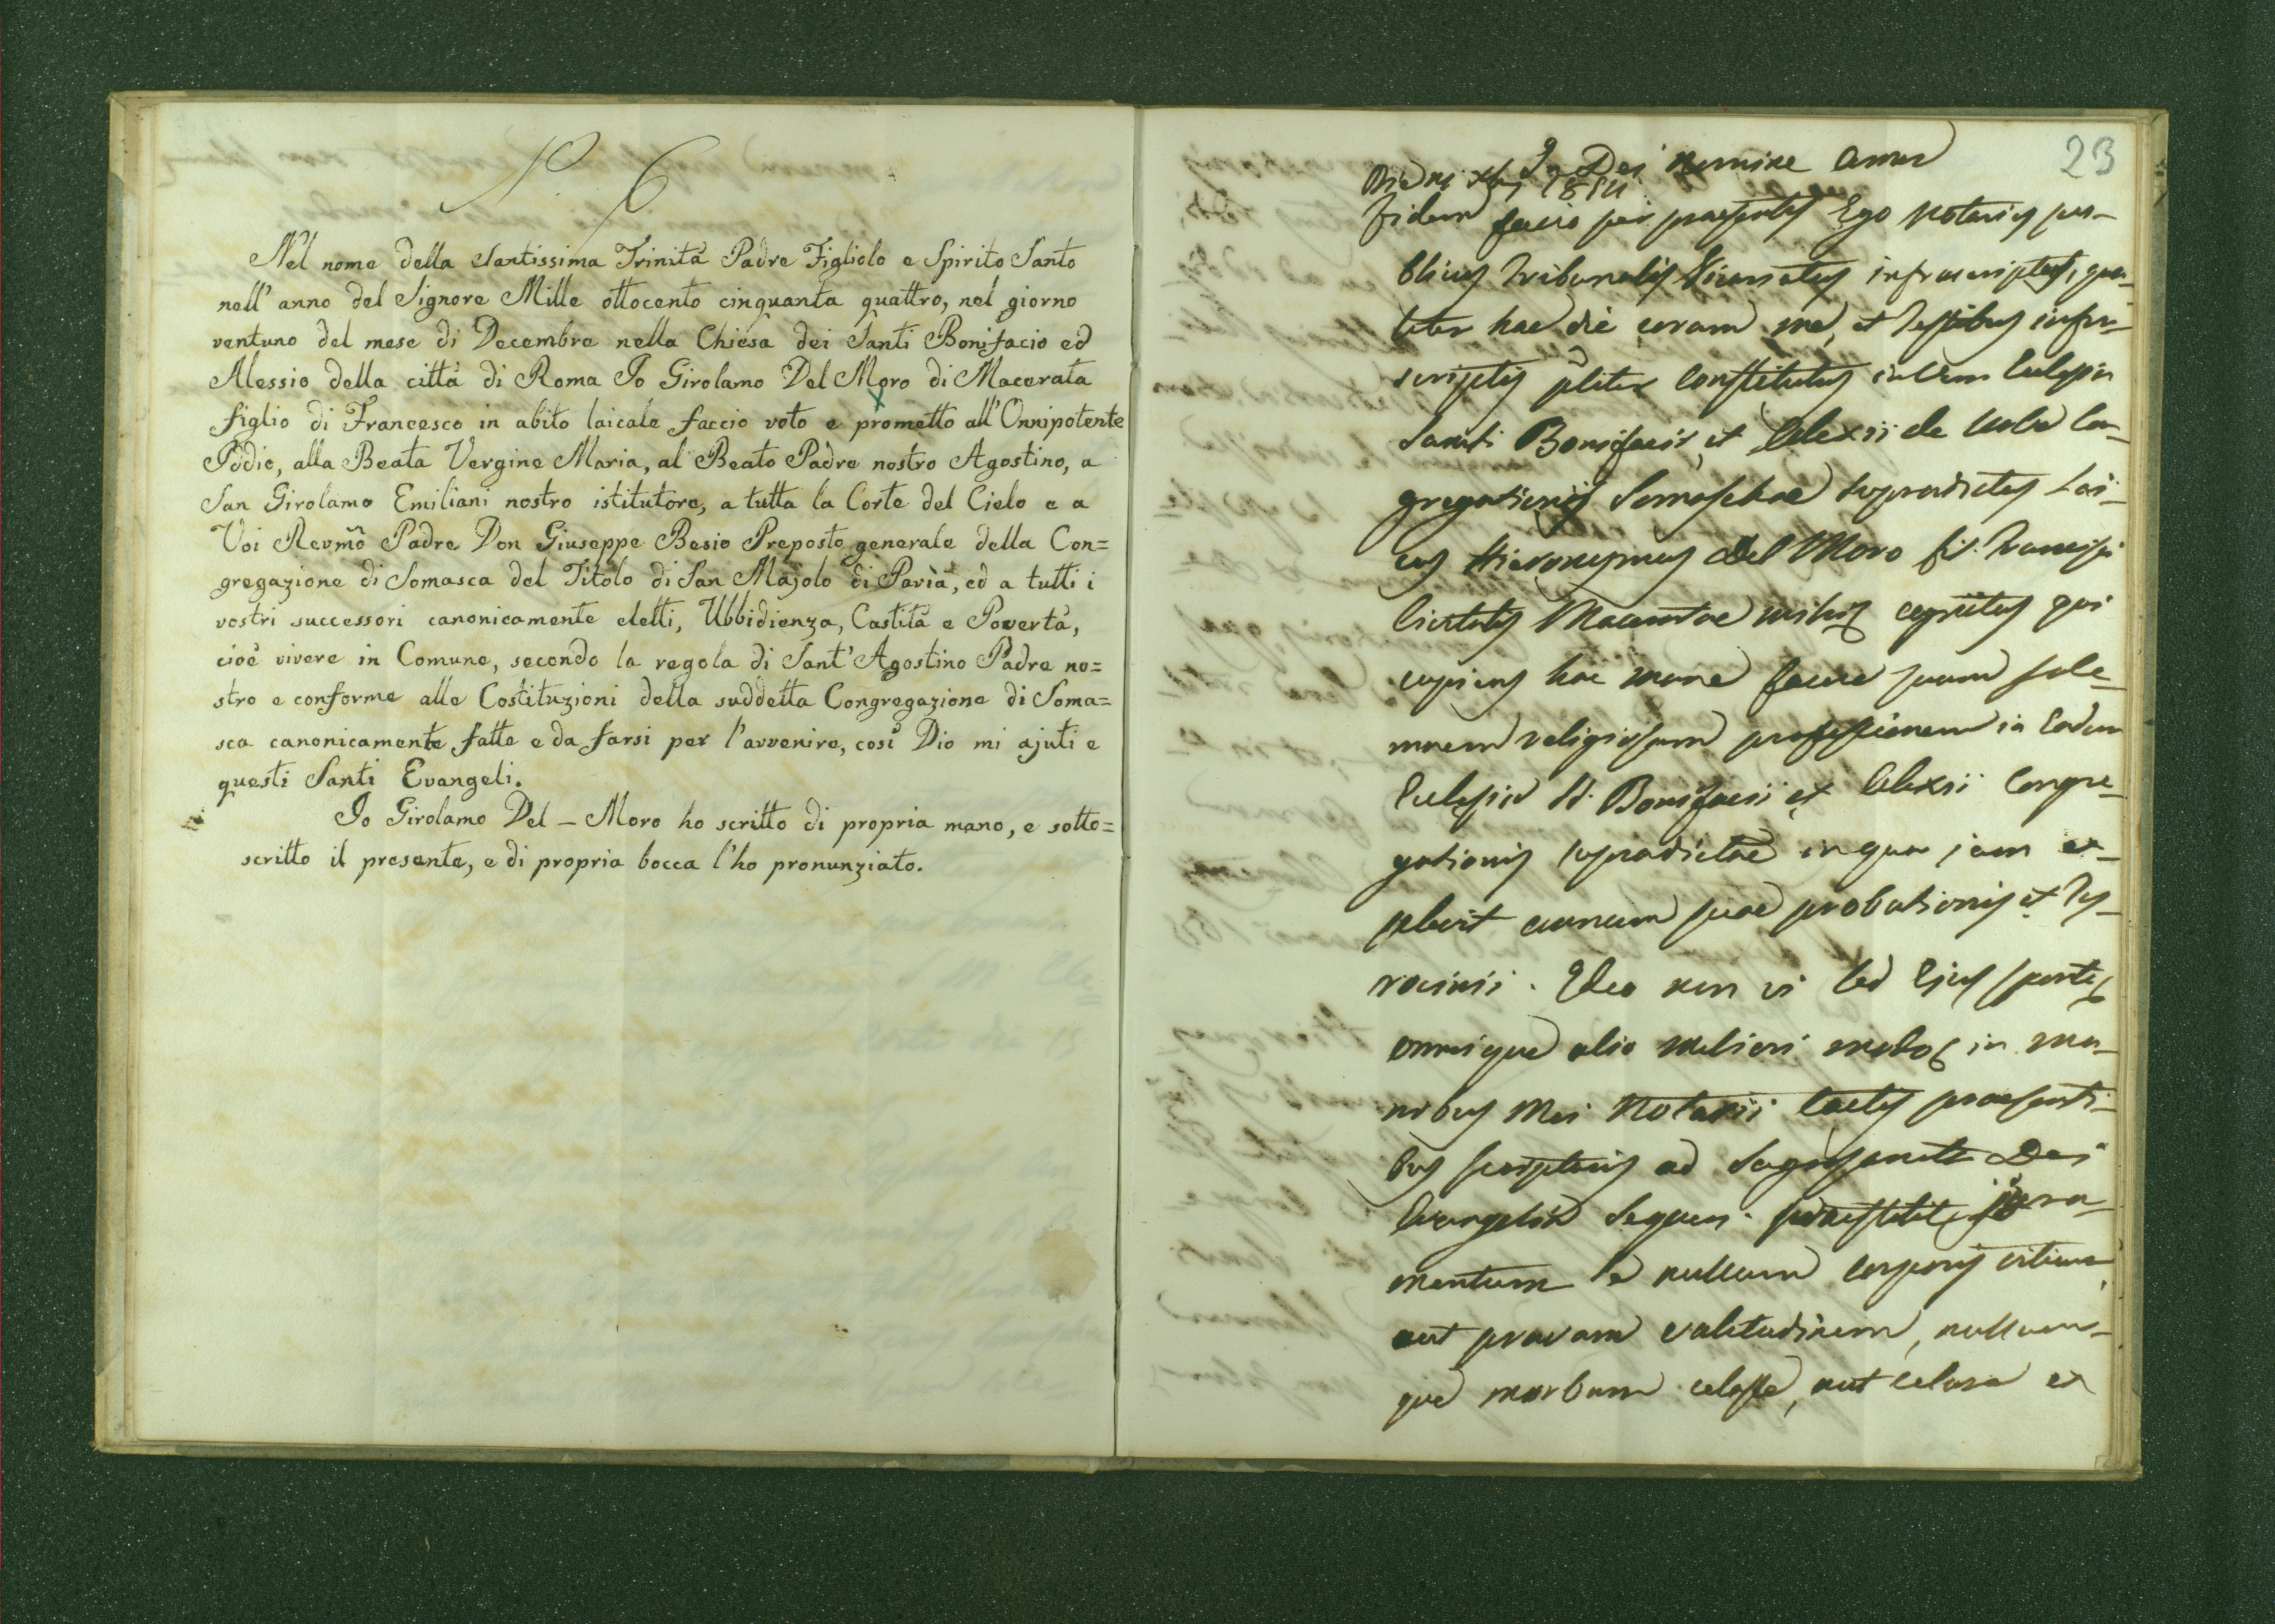 N. 6
Nel nome della Santissima Trinità Padre Figliolo e Spirito Santo
nell' anno del Signore Mille ottocento cinquanta quattro, nel giorno
ventuno del mese di Decembre nella Chiesa dei Santi Bonifacio ed
Alessio della città di Roma Io Girolamo Del Moro di Macerata
figlio di Francesco in abito laicale faccio voto e prometto all' Onnipotente
Iddio, alla Beata Vergine Maria, al Beato Padre nostro Agostino, a
San Girolamo Emiliani nostro istitutore, a tutta la Corte del Cielo e a
Voi Revmo Padre Don Giuseppe Besio Preposto generale della Con=
gregazione di Somasca del Titolo di San Majolo di Pavia, ed a tutti i
vostri successori canonicamente eletti, Ubbidienza, Castità e Povertà,
cioè vivere in Comune, secondo la regola di Sant' Agostino Padre no=
stro e conforme alle Costituzioni della suddetta Congregazione di Soma=
sca canonicamente fatte e da farsi per l'avvenire, così Dio mi ajuti e
questi Santi Evangeli.
Io Girolamo Del - Moro ho scritto di propria mano, e sotto=
scritto il presente, e di propria bocca l'ho pronunziato.
23
In Dei nomine Amen
Die 1854
Fidem facio per praesentes Ego Notarius pu-
blicus Tribunalis Vicariatus infrascriptus, qua-
liter hac die coram me, et Testibus infra-
scriptis pliter constitutus in Ecclesia
Sancti Bonifacii et Alexii de Urbe Con-
gregationis Somaschae supradictus Lai-
cus Hieronymus Del Moro fil. Francisci
Civitatis Maceratae mihi cognitus qui
cupiens hac mane facere suam sole-
mnem religiosam professionem in eadem
Ecclesia SS. Bonifacii et Alexii Congre-
gationis supradictae in qua jam ex-
plevit annum suae probationis et Ty-
rocinii. Ideo non vi sed ejus sponte
omnique alio meliori modo in ma-
nibus mei Notarii tactis praesenti-
bus scripturis ad Sagrosancta Dei
Evangelia sequens praestitit jura-
mentum se nullum corporis vitium
aut pravam valetudinem, nullum-
que morbum celasse, aut celare et